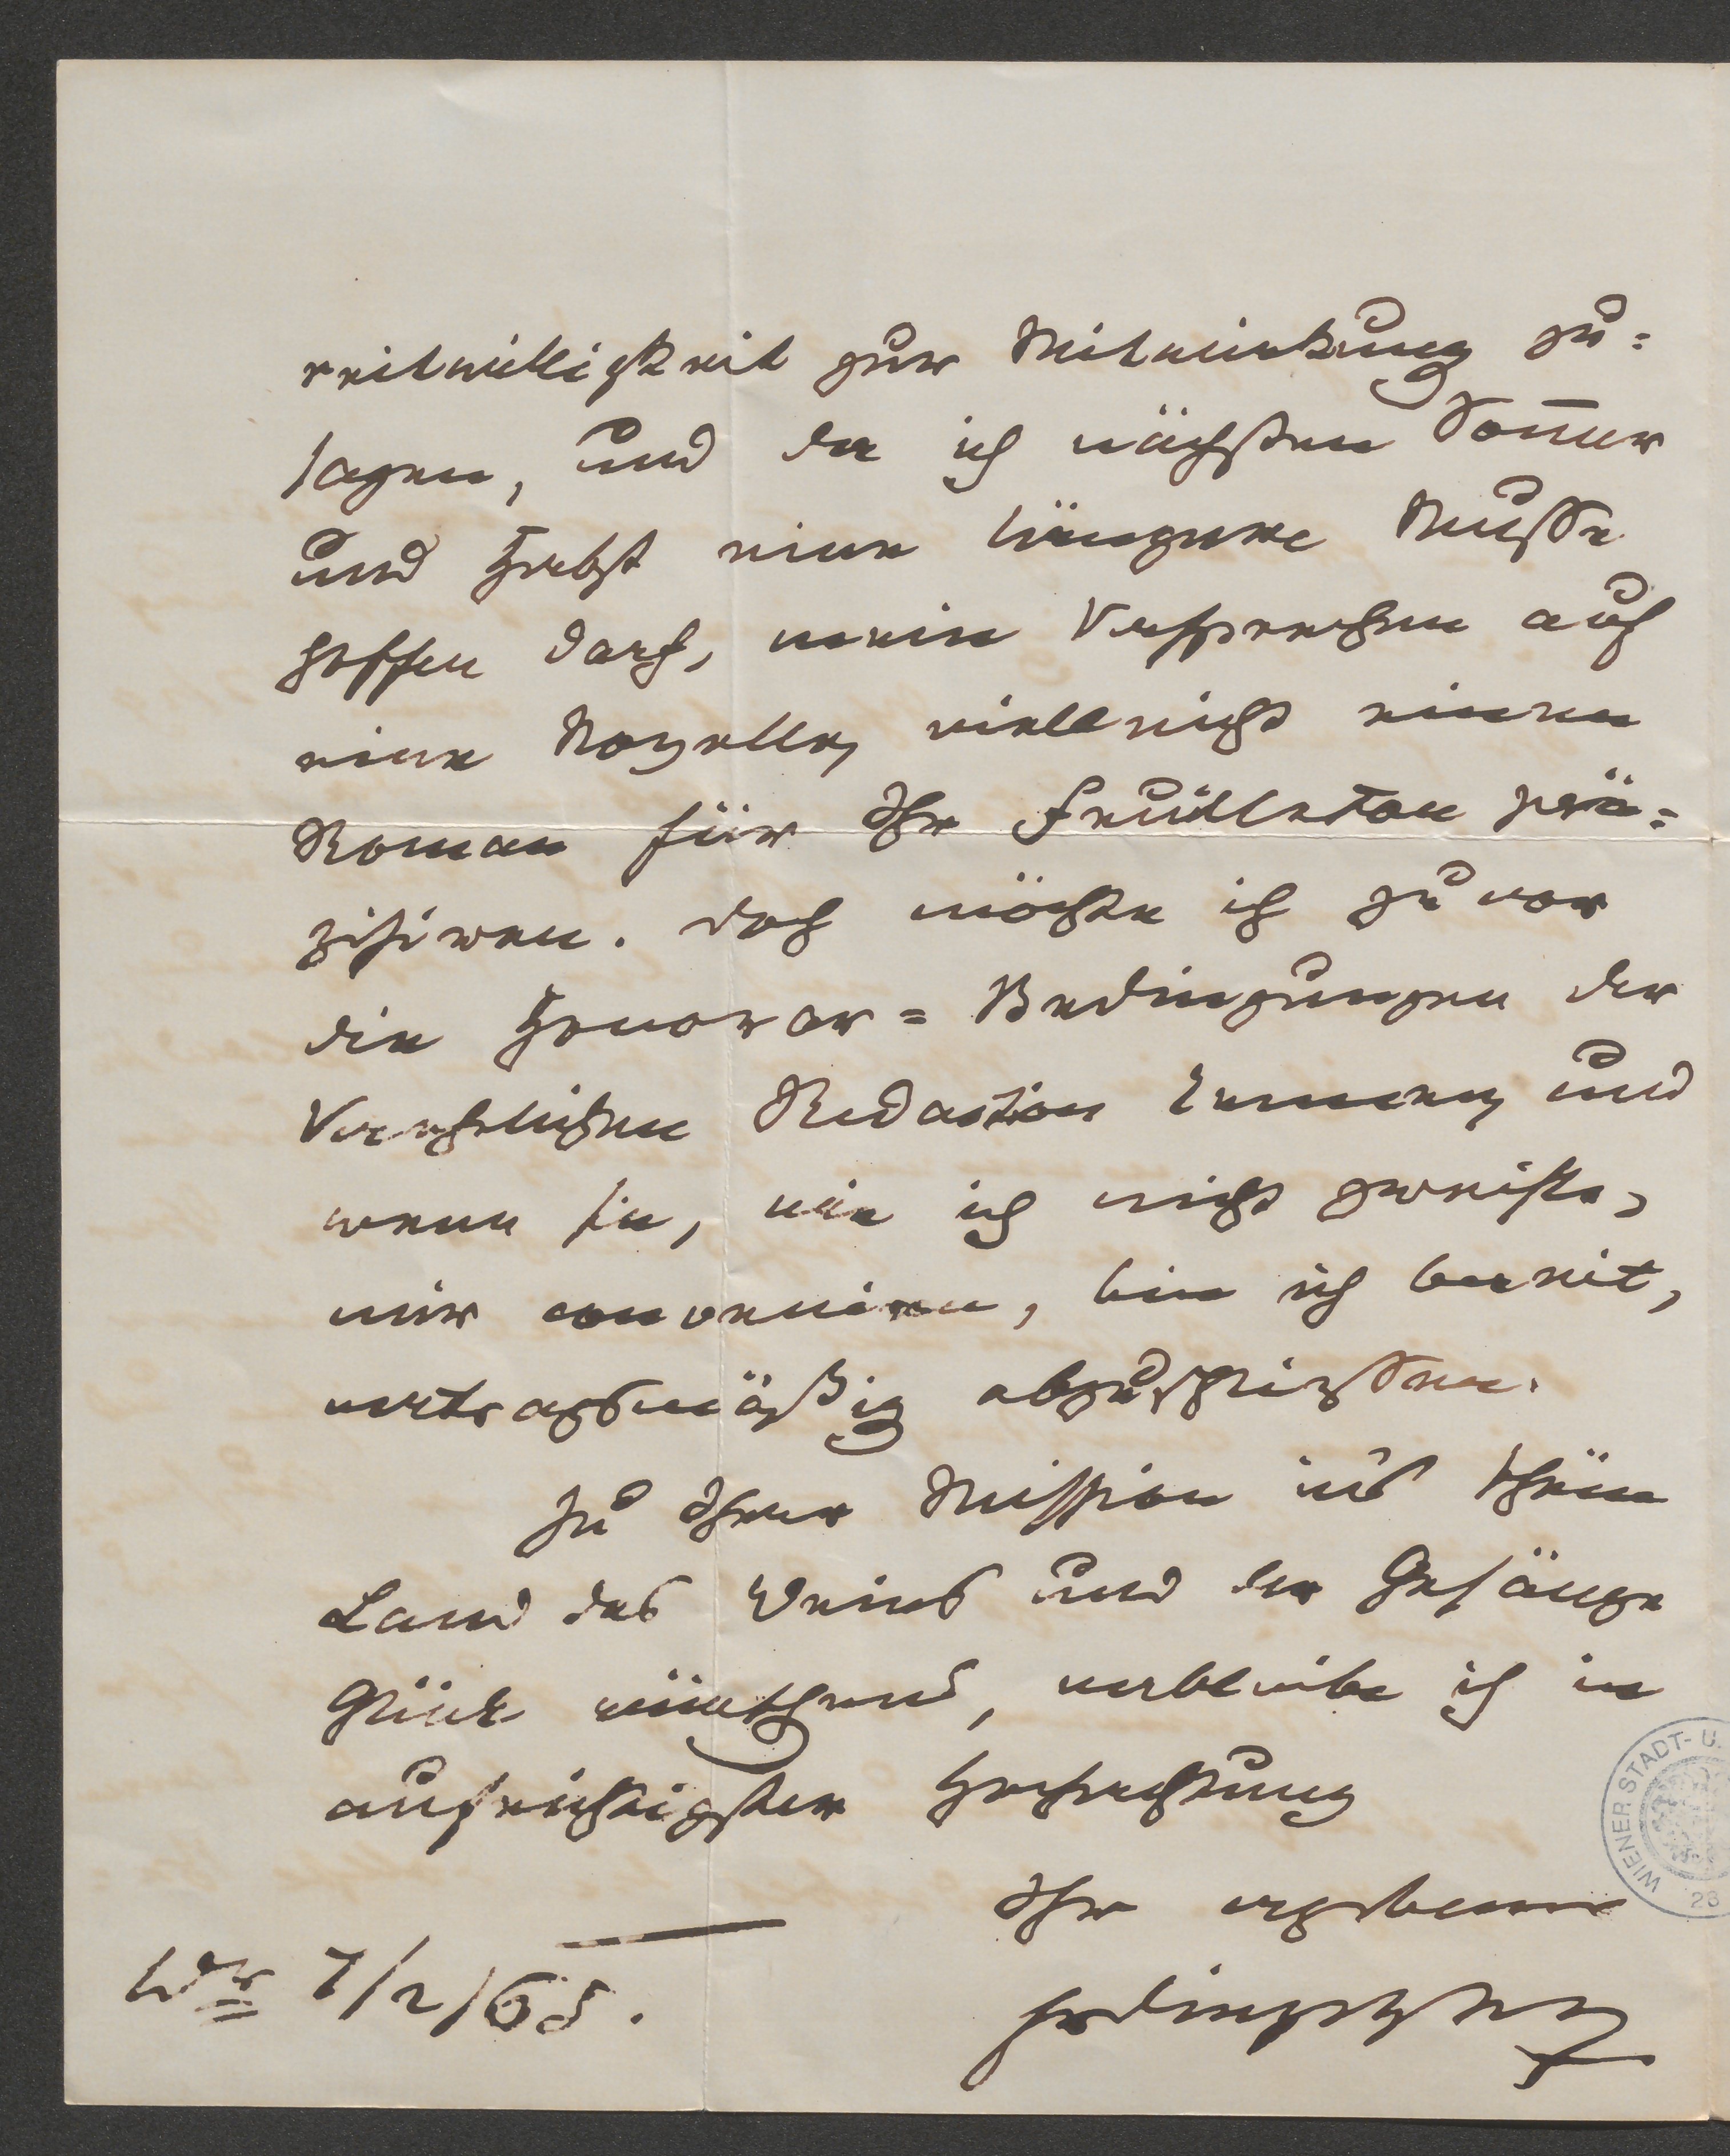 reitwilligkeit zur Mitwirkung zu=
sagen, und da ich nächsten Som̅er
und Herbst eine längere Muße
hoffen darf, mein Versprechen auf
eine Novelle, vielleicht einen
Roman für Ihr Feuilleton prä=
zisiren. Doch möchte ich zuvor
die Honorar=Bedingungen der
Verehrlichen Redaction kennen, und
wenn sie, wie ich nicht zweifle,
mir conveniren, bin ich bereit,
vertragsmäßig abzuschließen.
Zu Ihrer Mission ins schöne
Land des Weins und der Gesänge
Glück wünschend, verbleibe ich in
aufrichtigster Hochachtung
Ihr ergebener
Wr 7/2/65.
WIENER STADT- U.
28